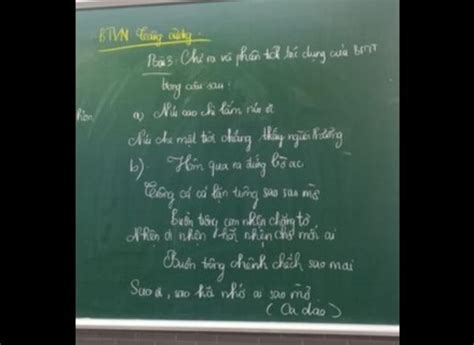 BTVN Tăng cường.
Bài 3: Chỉ ra và phân tích tác dụng của BPTT
trong câu sau:
a) Núi cao chi lắm núi ơi
Núi che mặt trời chẳng thấy người thương
b) Hôm qua ra đứng bờ ao
Trông cá cá lặn trông sao sao mờ
Buồn trông con nhện chăng tơ
Nhện ơi nhện hỡi nhện chờ mối ai
Buồn trông chênh chếch sao mai
Sao ơi, sao hỡi nhớ ai sao mờ
(Ca dao)